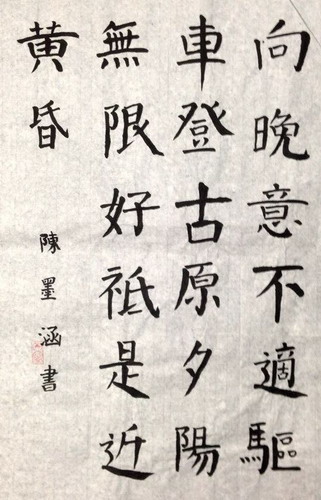 向晚意不適驅
車登古原夕陽
無限好祗是近
黄昏
陳墨涵書